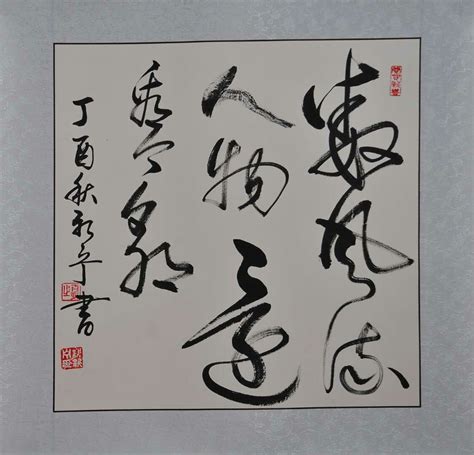 數風流
人物還
看今朝
丁酉秋新平書